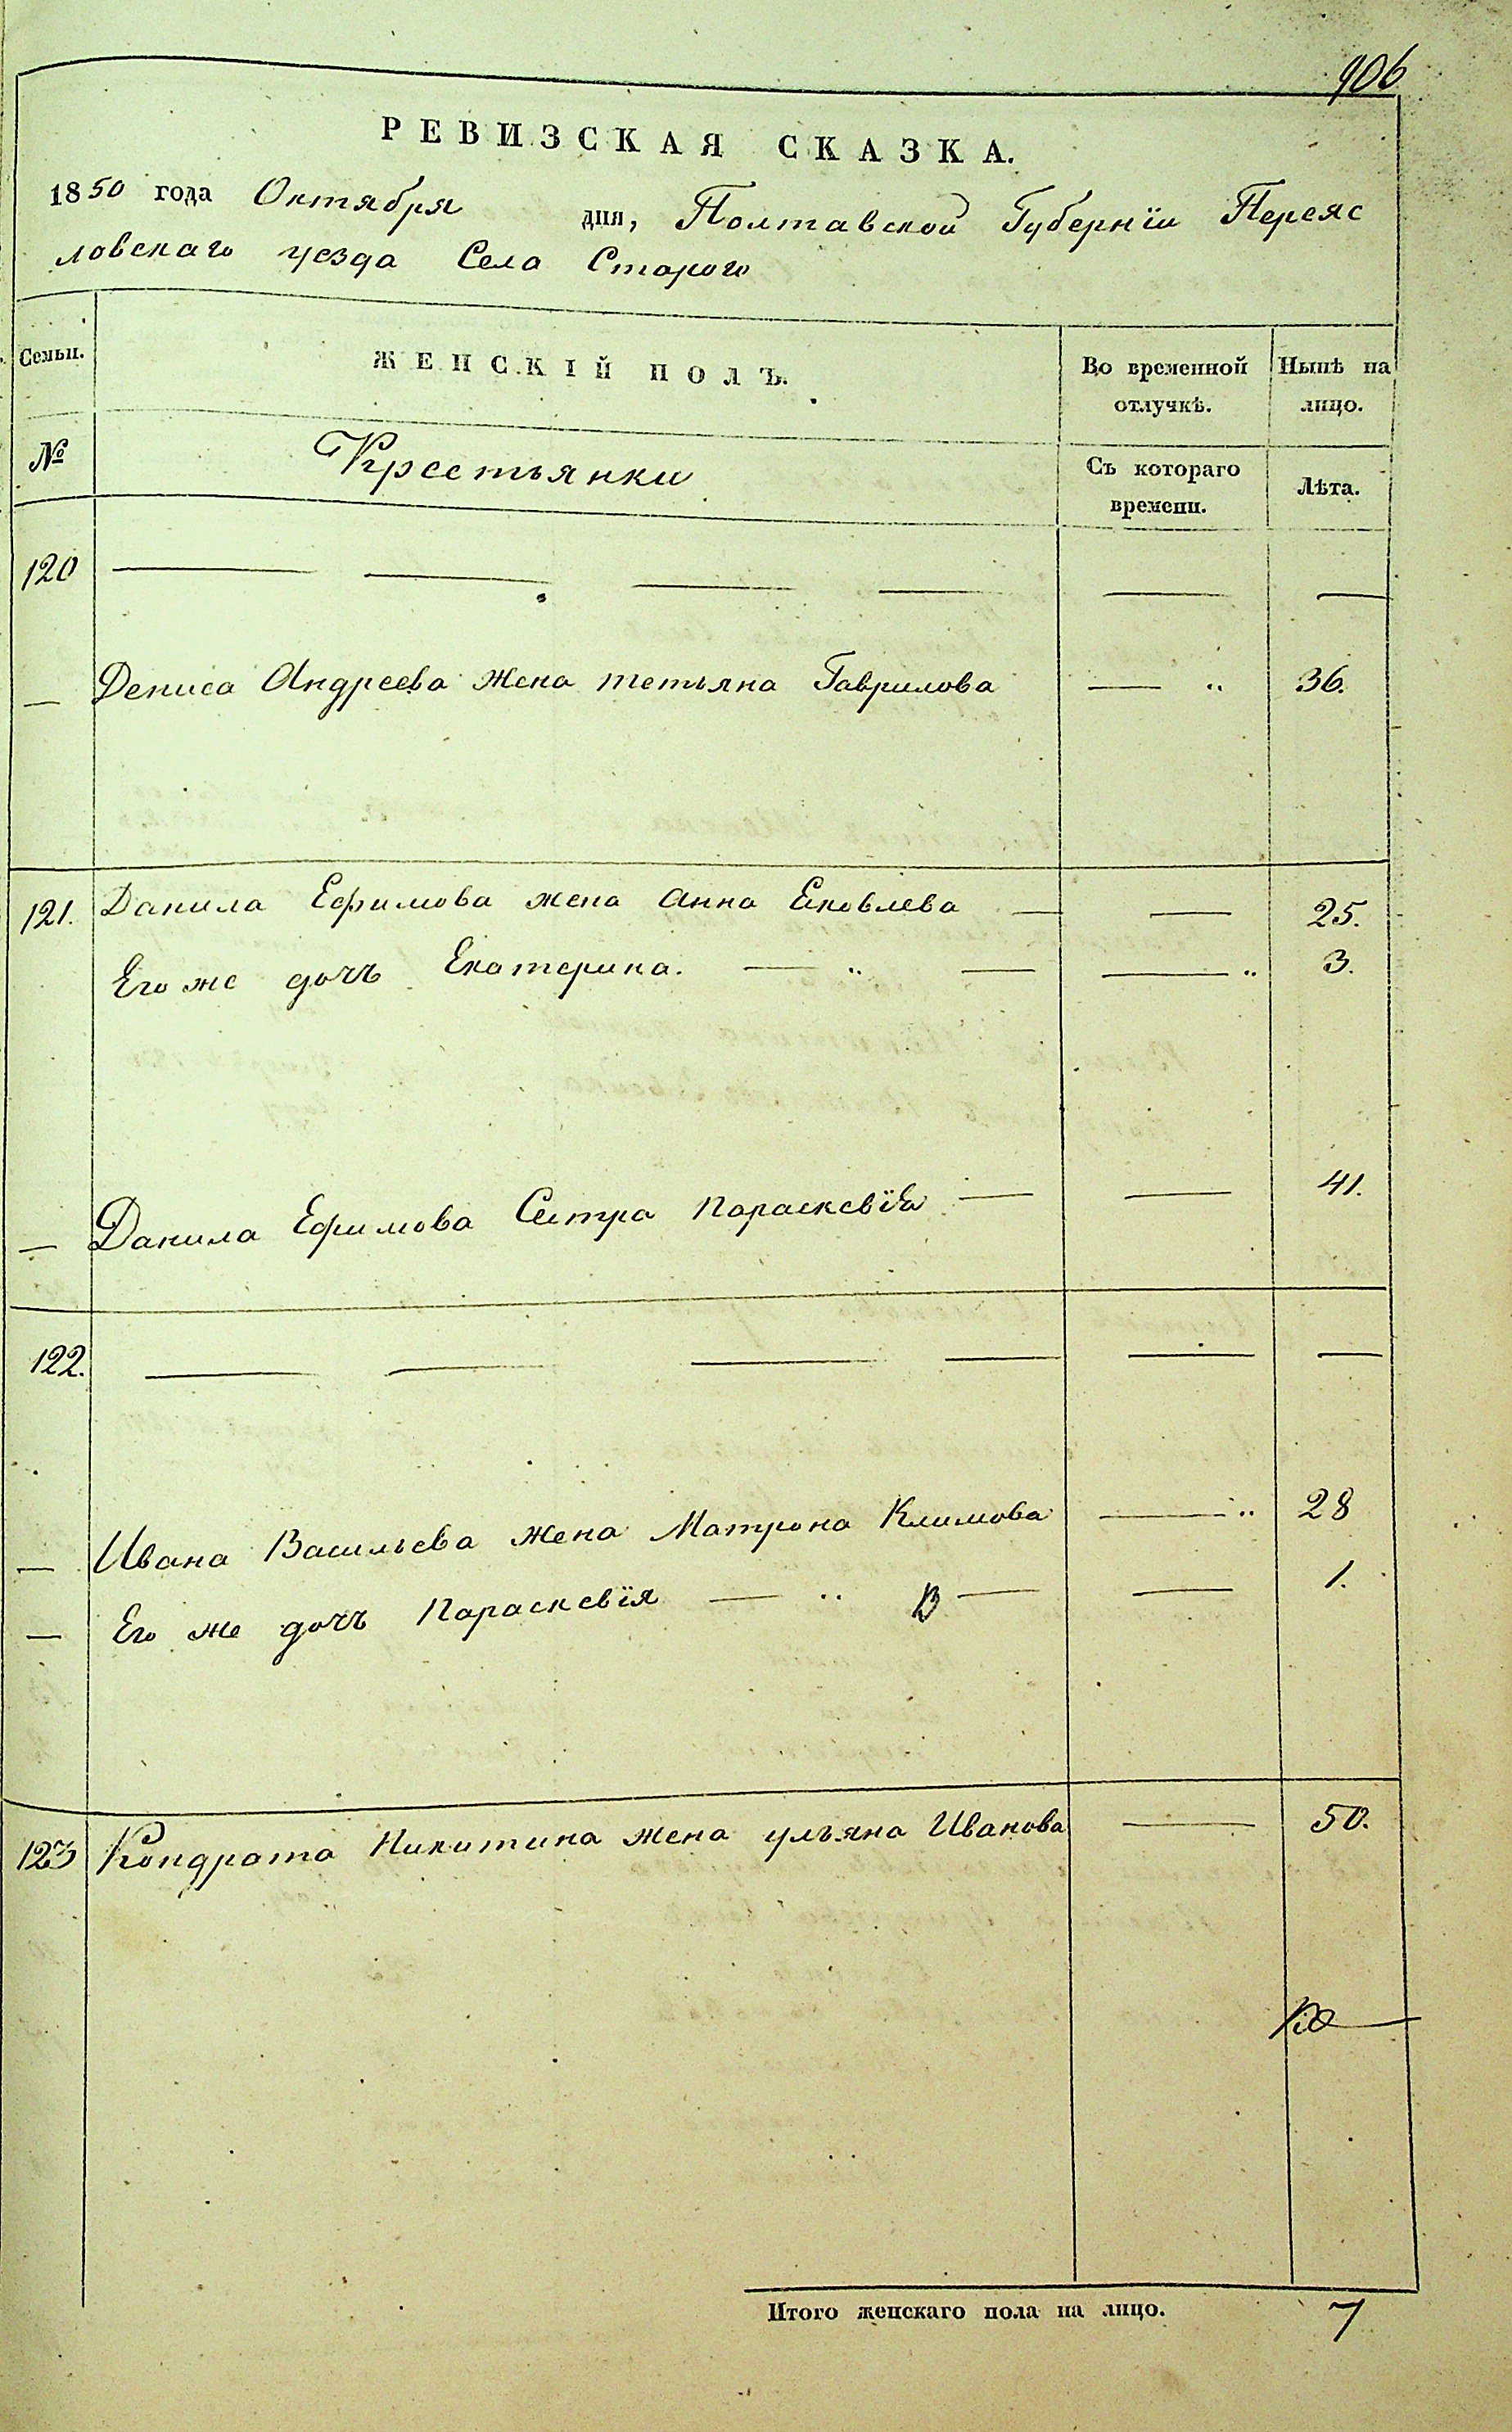 906
РЕВИЗСКАЯ СКАЗКА.
1850 года Октября дня, Полтавской Губернїи Переяс
ловскаго уезда Села Старого
Семьи. ЖЕНСКІЙ ПОЛЪ. Во временной отлучкѣ. Нынѣ на лицо.
№ Крестьянки Съ котораго времени. Лѣта.
120 — — — — — —
— Дениса Андреева жена тетьяна Гаврилова — „ 36.
121. Данила Ефимова жена Анна Ековлева — — 25.
Его же дочь Екатерина. — „ — — „ 3.
— Данила Ефимова Сестра Параскевїя — — 41.
122. — — — — — —
— Ивана Васильева жена Матрона Климова — „ 28
— Его же дочь Параскевїя — „ — — 1.
123 Кондрата Никитина жена ульяна Иванова — 50.
Итого женскаго пола на лицо. 7